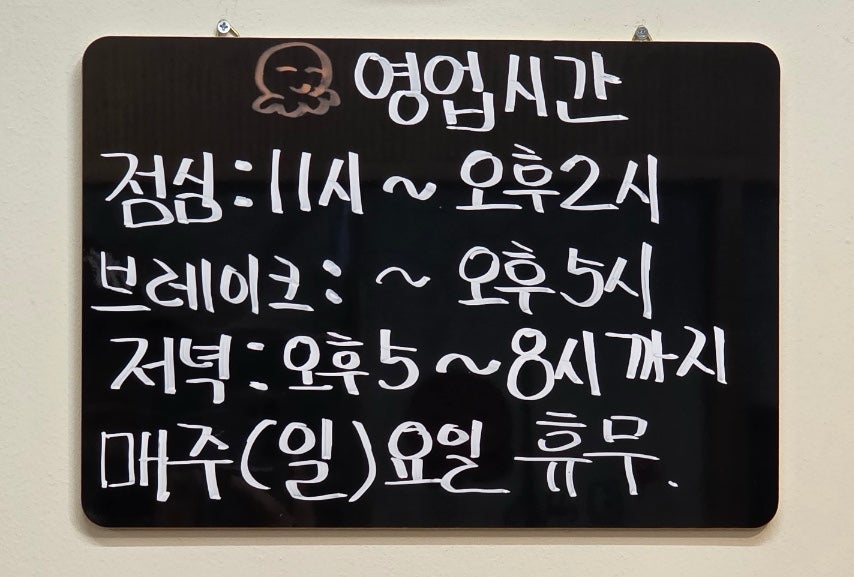 영업시간
점심:11시 ~ 오후2시
브레이크: ~ 오후5시
저녁:오후5~8시까지
매주(일)요일 휴무.